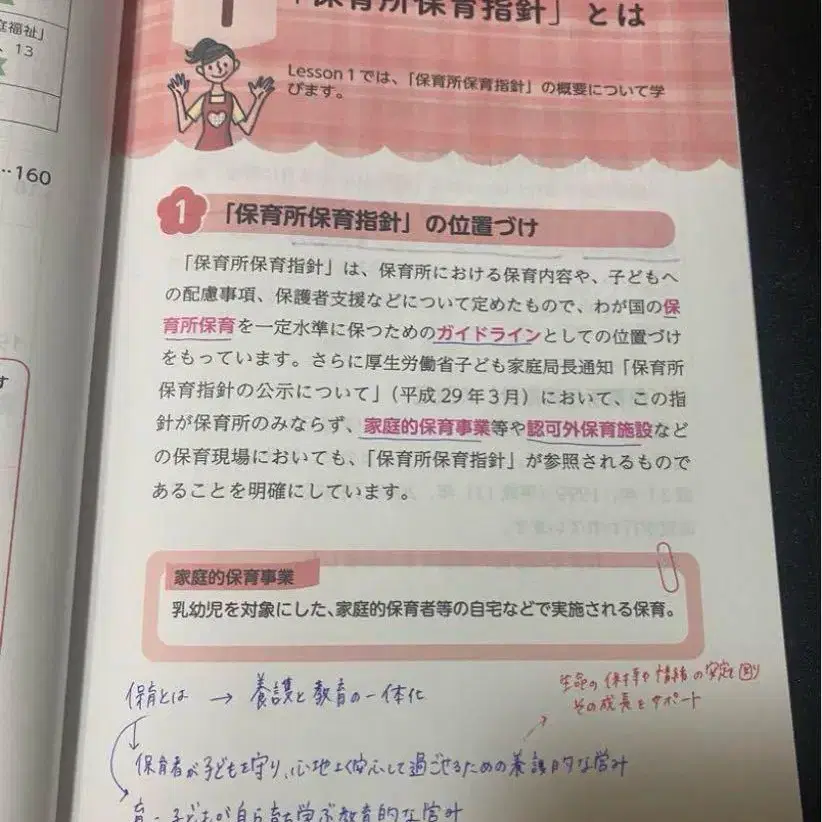 庭福祉」
13
…160
す
1
「保育所保育指針」とは
Lesson 1 では、「保育所保育指針」の概要について学
びます。
1 「保育所保育指針」の位置づけ
「保育所保育指針」は、保育所における保育内容や、子どもへ
の配慮事項、保護者支援などについて定めたもので、わが国の保
育所保育を一定水準に保つためのガイドラインとしての位置づけ
をもっています。さらに厚生労働省子ども家庭局長通知「保育所
保育指針の公示について」(平成 29 年 3 月) において、この指
針が保育所のみならず、家庭的保育事業等や認可外保育施設など
の保育現場においても、「保育所保育指針」が参照されるもので
あることを明確にしています。
家庭的保育事業
乳幼児を対象にした、家庭的保育者等の自宅などで実施される保育。
保育とは → 養護と教育の一体化
生命の保持や情緒の安定を図り
その成長をサポート
保育者が子どもを守り、心地よく安心して過ごせるための養護的な営み
育… 子どもが自ら育ち学ぶ教育的な営み